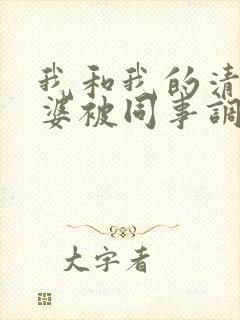 我和我的清
婆被同事調
大字者